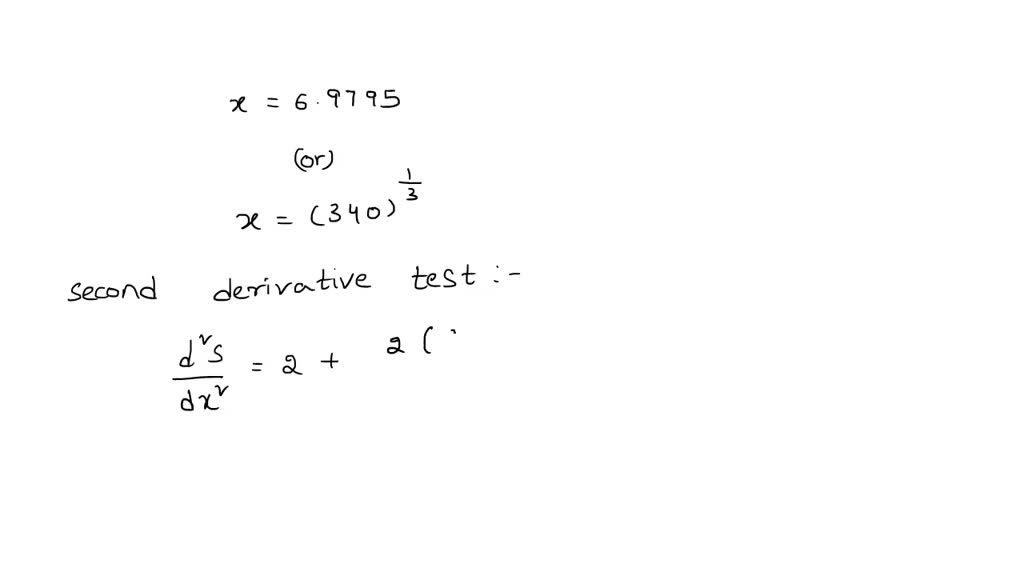 x = 6.9795
(or)
x = (340)^(1/3)
second derivative test :-
d²s/dx² = 2 + 2 (